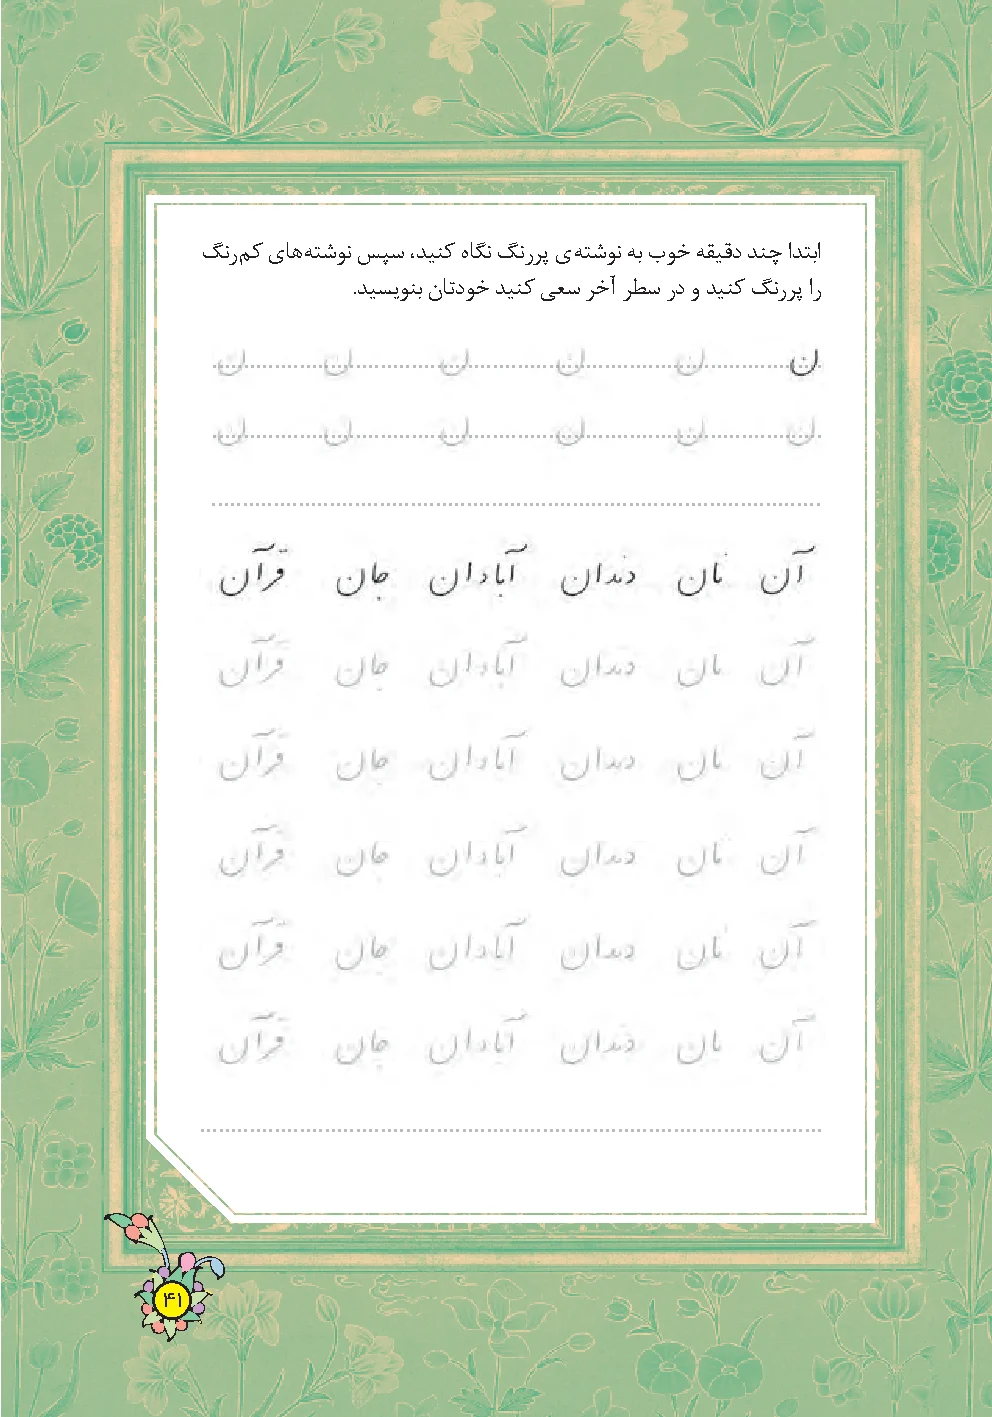 ابتدا چند دقیقه خوب به نوشته‌ی پررنگ نگاه کنید، سپس نوشته‌های کم‌رنگ
را پررنگ کنید و در سطر آخر سعی کنید خودتان بنویسید.
ن ن ن ن ن ن
ن ن ن ن ن ن
آن نان دندان آبادان جان قرآن
آن نان دندان آبادان جان قرآن
آن نان دندان آبادان جان قرآن
آن نان دندان آبادان جان قرآن
آن نان دندان آبادان جان قرآن
آن نان دندان آبادان جان قرآن
۴۱